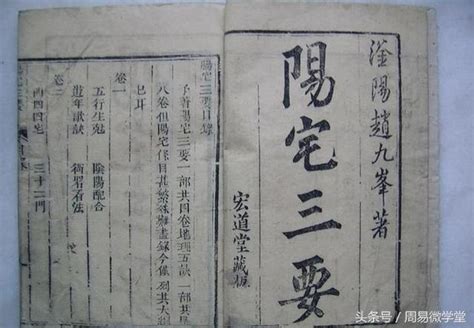 滏陽趙九峯著
陽宅三要
宏道堂藏板
陽宅三要目錄
予著陽宅三要一部共四卷地理五訣一部共
八卷但陽宅條目甚繁殊難盡錄今僅將其大
已耳
卷一
五行生尅 陰陽配合
遊年歌訣
卷二
四宅 三十二門
头条号 / 周易微学堂